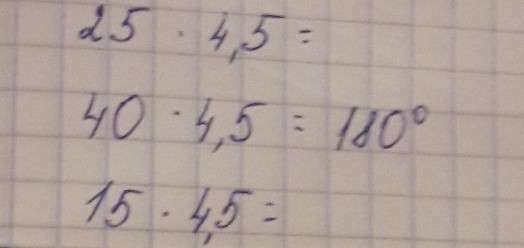 25 · 4,5 =
40 · 4,5 = 180°
15 · 4,5 =